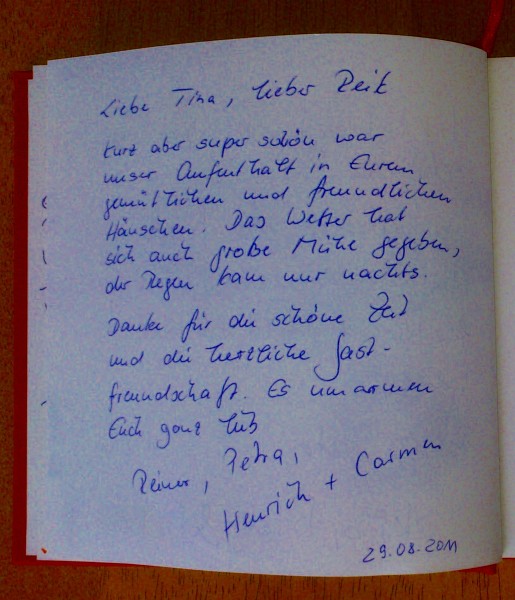 Liebe Tina, lieber Reik
kurz aber super schön war
unser Aufenthalt in Eurem
gemütlichen und freundlichen
Häuschen. Das Wetter hat
sich auch große Mühe gegeben,
der Regen kam nur nachts.
Danke für die schöne Zeit
und die herzliche Gast-
freundschaft. Es umarmen
Euch ganz lieb
Reiner, Petra,
Henrich + Carmen
29.08.2011